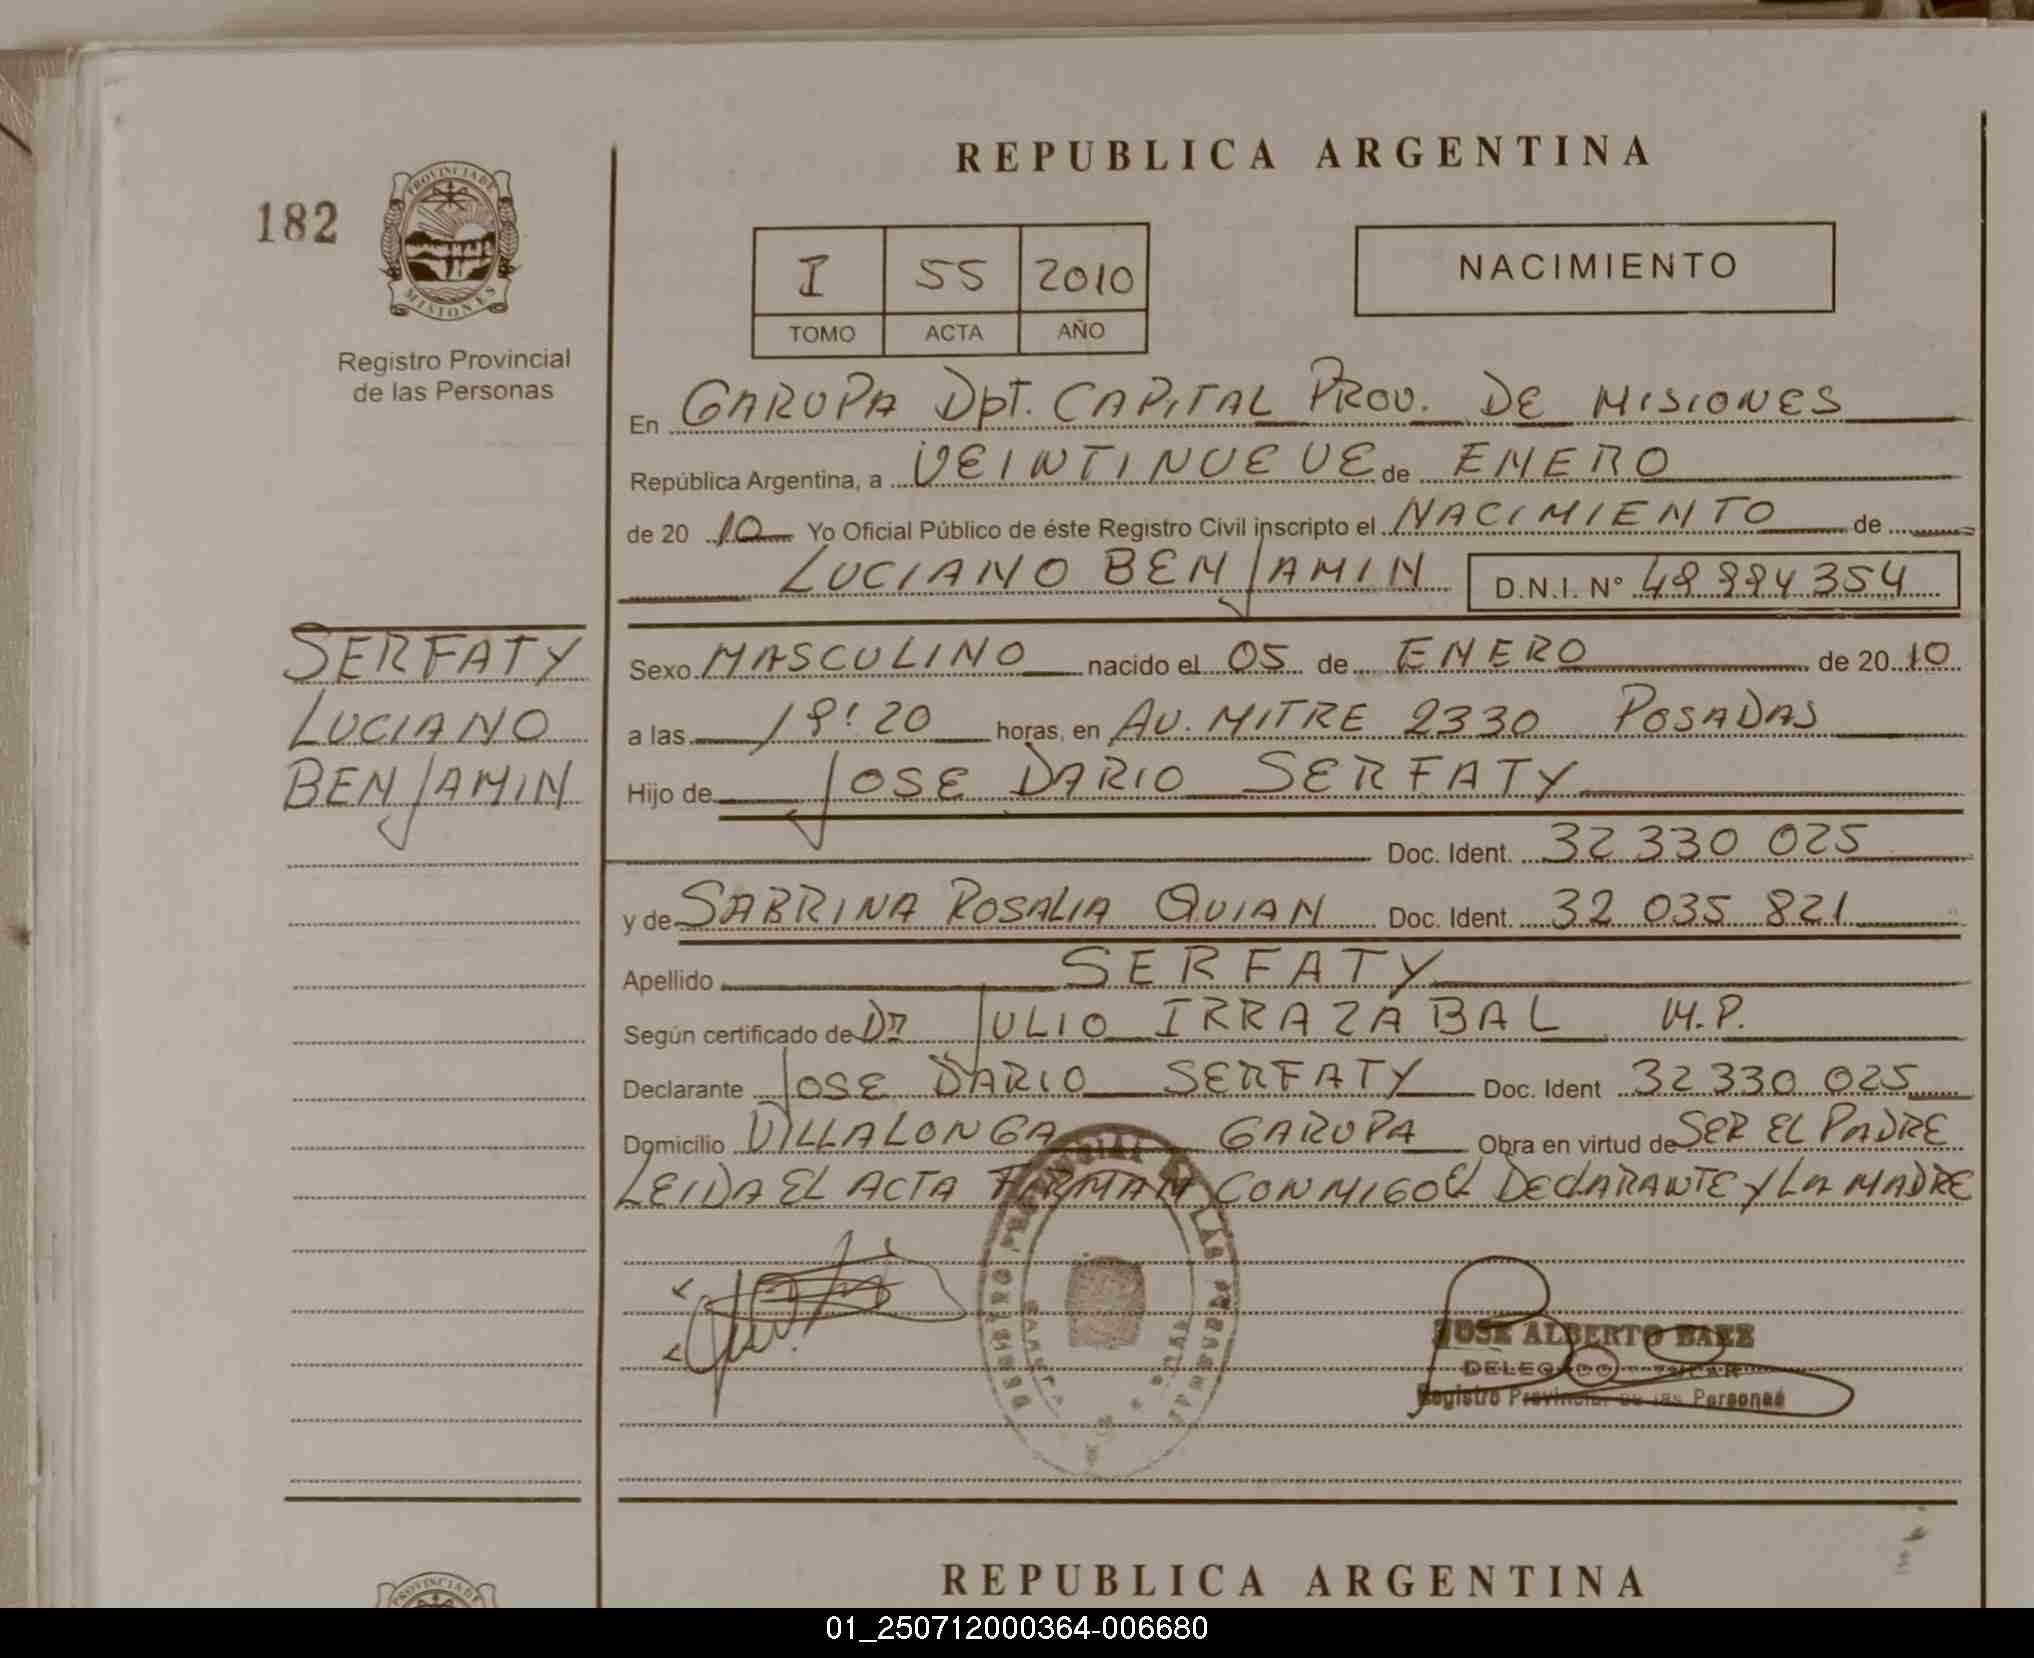 REPUBLICA ARGENTINA
182
PROVINCIA DE
MISIONES
Registro Provincial
de las Personas
I 55 2010
TOMO ACTA AÑO
NACIMIENTO
En GARUPA DpT. CAPITAL PROV. DE MISIONES
República Argentina, a VEINTINUEVE de ENERO
de 20 10 Yo Oficial Público de éste Registro Civil inscripto el NACIMIENTO de
LUCIANO BENJAMIN D.N.I. N°
SERFATY
LUCIANO
BENJAMIN
Sexo MASCULINO nacido el 05 de ENERO de 20 10
a las horas, en AV. MITRE 2330 POSADAS
Hijo de JOSE DARIO SERFATY
Doc. Ident. 32 330 025
y de SABRINA ROSALIA QUIAN Doc. Ident. 32 035 821
Apellido SERFATY
Según certificado de DR JULIO IRRAZABAL M.P.
Declarante JOSE DARIO SERFATY Doc. Ident 32 330 025
Domicilio VILLALONGA GARUPA Obra en virtud de SER EL PADRE
LEIDA EL ACTA FIRMAN CONMIGO EL DECLARANTE Y LA MADRE
JOSE ALBERTO BAEZ
DELEGADO TITULAR
Registro Provincial de las Personas
REPUBLICA ARGENTINA
PROVINCIA DE
01_250712000364-006680